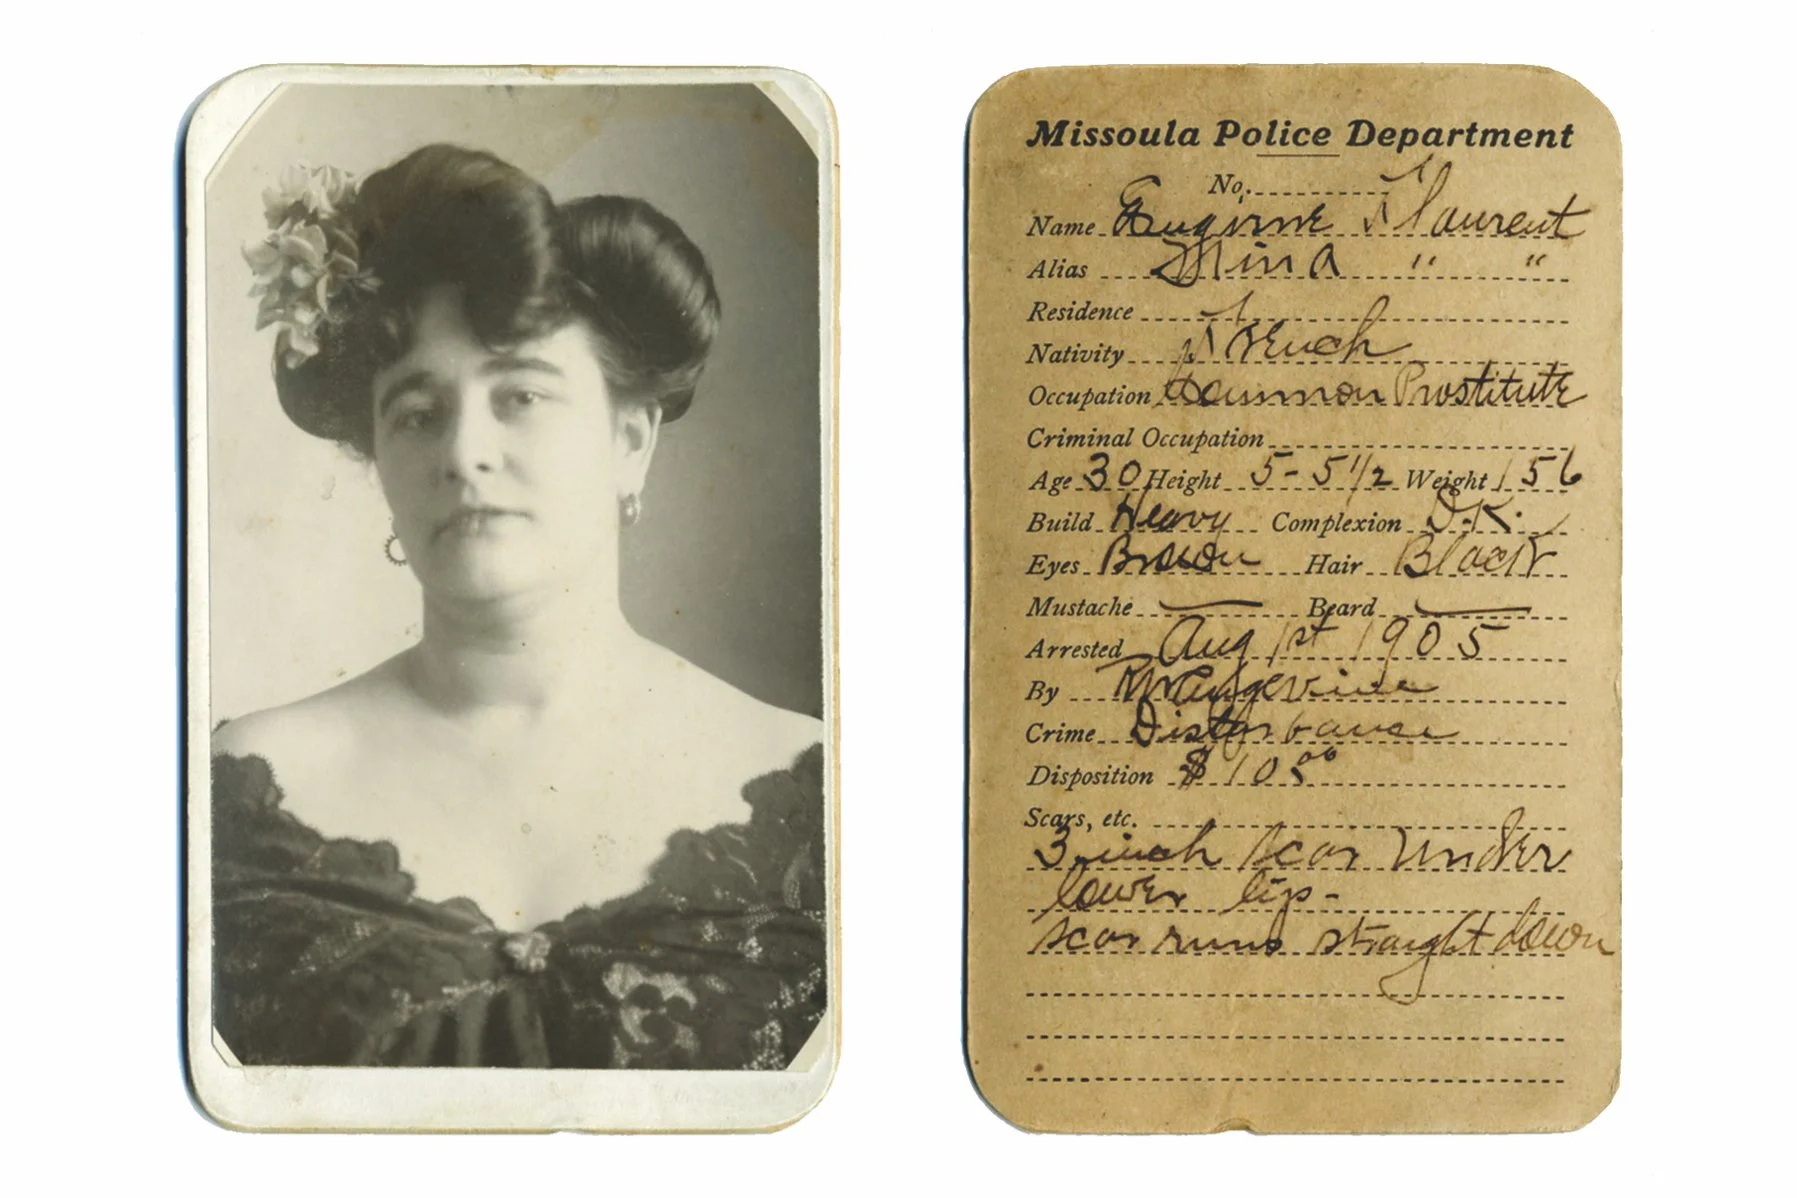 Missoula Police Department
No.
Name Eugirne Flaurent
Alias Mina " "
Residence
Nativity French
Occupation Common Prostitute
Criminal Occupation
Age 30 Height 5-5 1/2 Weight 156
Build Heavy Complexion D.K.
Eyes Brown Hair Black
Mustache — Beard —
Arrested Aug 1st 1905
By Angevine
Crime Disturbance
Disposition $10.00
Scars, etc.
3 inch scar under
lower lip-
scar runs straight down